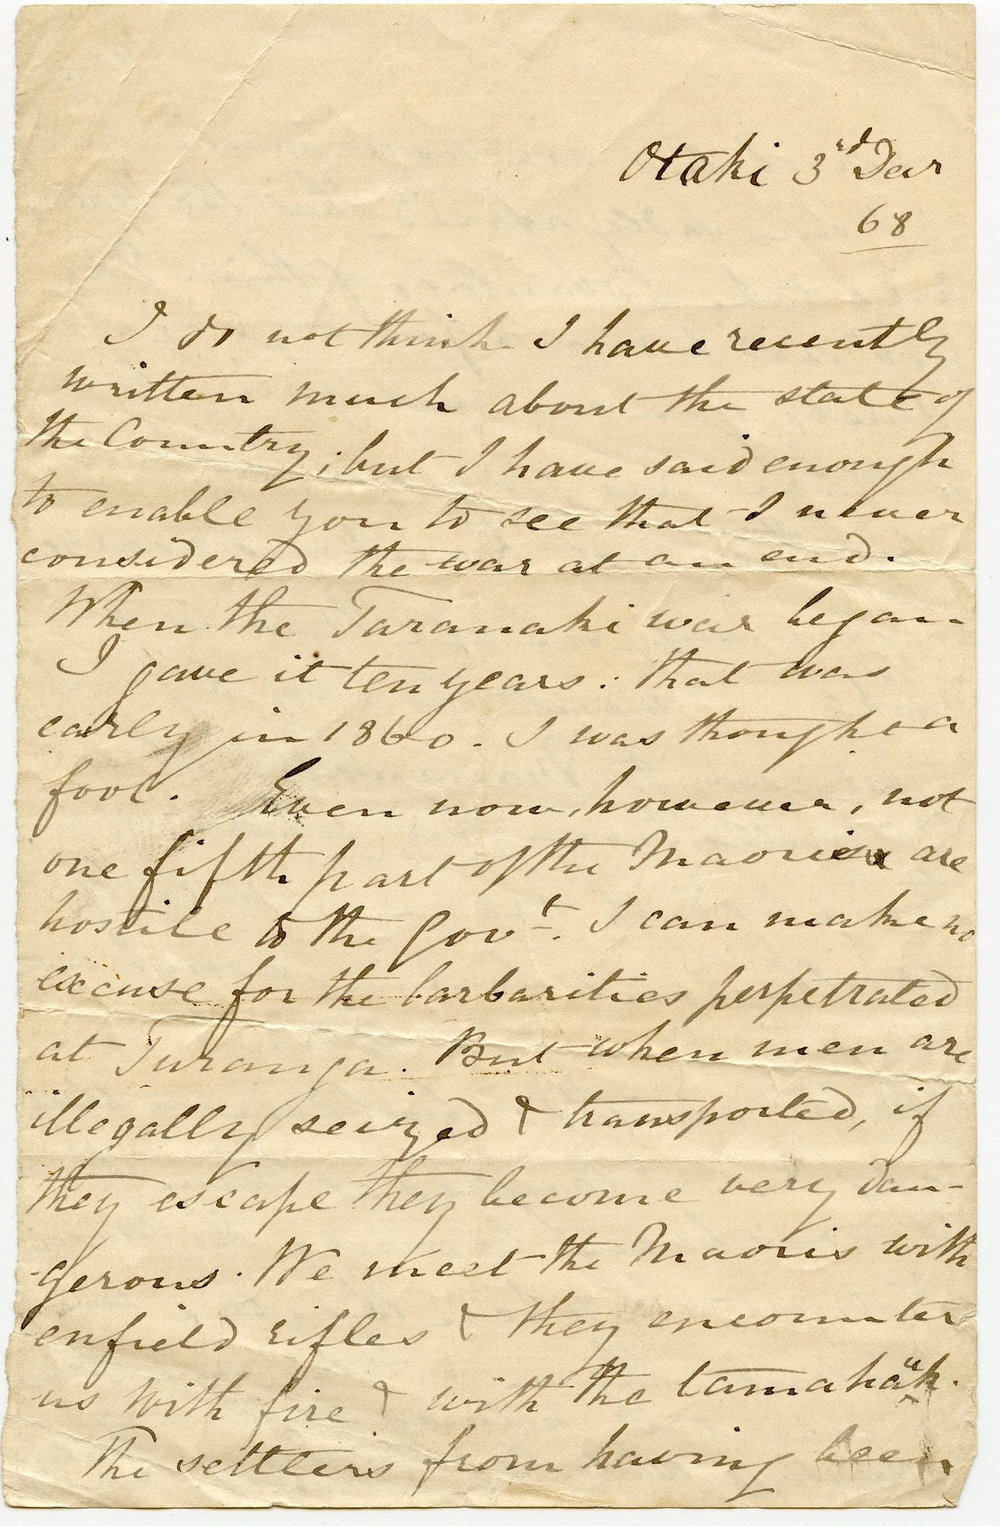 Otaki 3rd Decr
68
I do not think I have recently
written much about the state of
the Country; but I have said enough
to enable you to see that I never
considered the war at an end.
When the Taranaki war began
I gave it ten years: that was
early in 1860. I was thought a
fool. Even now, however, not
one fifth part of the Maories are
hostile to the Govt. I can make no
excuse for the barbarities perpetrated
at Turanga. But when men are
illegally seized & transported, if
they escape they become very dan-
gerous. We meet the Maoris with
enfield rifles & they encounter
us with fire & with the tamahauk.
The settlers from having been